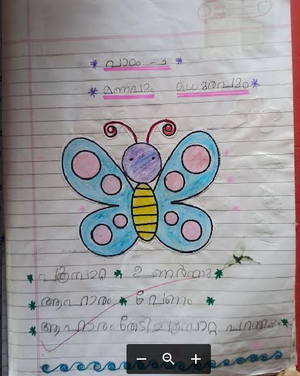 * പാഠം - 3 *
* മണവും മധുരവും *
* പൂമ്പാറ്റ * ഉണർന്നു *
* ആഹാരം * വേണം *
* ആഹാരം തേടി പൂമ്പാറ്റ പറന്നു